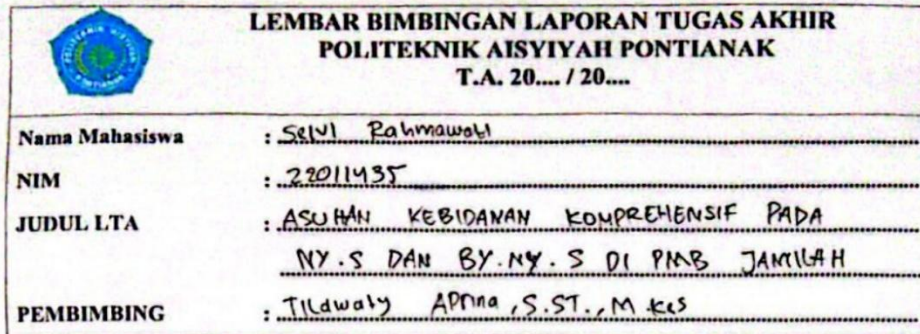 LEMBAR BIMBINGAN LAPORAN TUGAS AKHIR
POLITEKNIK AISYIYAH PONTIANAK
T.A. 20.... / 20....
Nama Mahasiswa : Selvi Rahmawati
NIM : 22011435
JUDUL LTA : ASUHAN KEBIDANAN KOMPREHENSIF PADA
NY.S DAN BY.NY.S DI PMB JAMILAH
PEMBIMBING : Tilawaty Aprina, S.ST., M.Kes